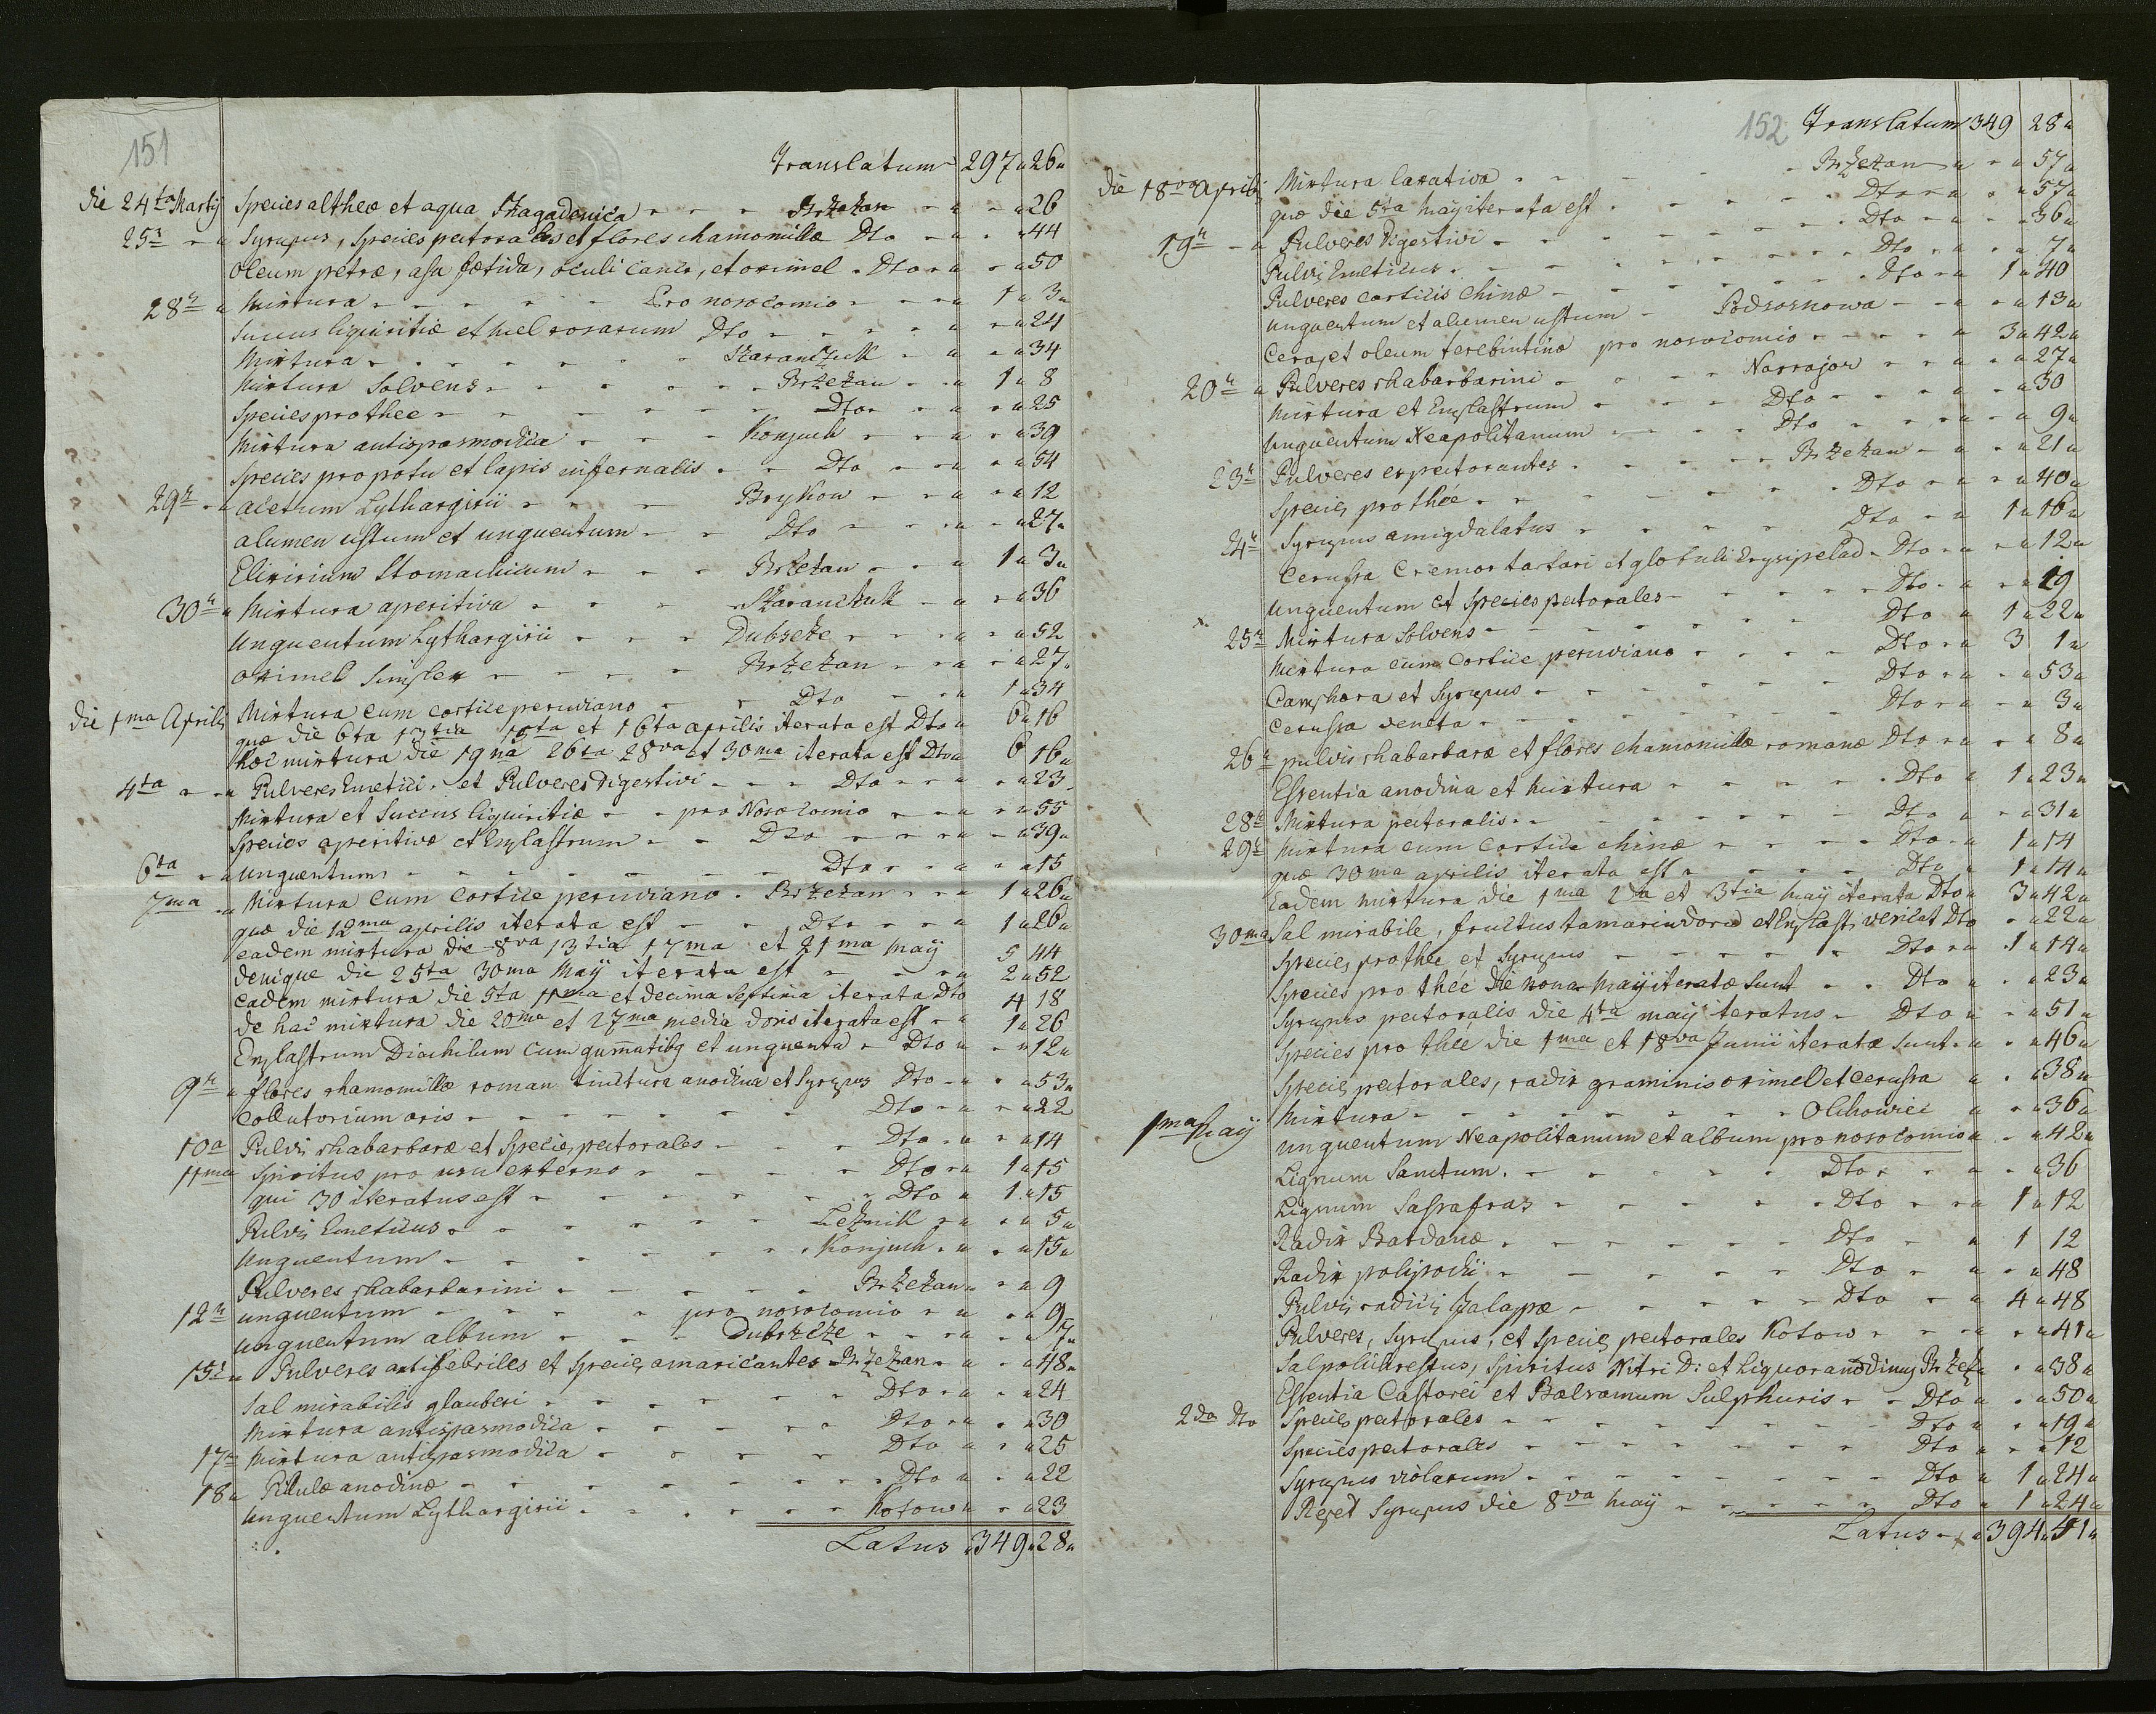 151
Translatum 297 26
die 24ta Martij Species altheæ et aqua Phagadenica Brzeżan 26
25ta Syrupus, Species pectorales et flores chamomillæ Dto 44
Oleum petræ, asa fœtida, oculi cancr, et oximel Dto 50
28ta Mixtura Pro nosocomio 1 3
Succus liquiritiæ et mel rosarum Dto 24
Mixtura Szaranczuk 34
Mixtura Solvens Brzeżan 1 8
Species pro thee Dto 25
Mixtura antispasmodica Konjuch 39
Species pro potu et lapis infernalis Dto 54
29 acetum Lythargirii Brykow 12
alumen ustum et unguentum Dto 27
Elixirium Stomachicum Brzeżan 1 3
30 Mixtura aperitiva Szaranczuk 36
Unguentum Lythargirii Dubszcze 52
Oximel Simplex Brzeżan 27
die 1ma Aprilis Mixtura cum cortice peruviano Dto 1 34
quæ die 6ta 13tia 15ta et 16ta aprilis iterata est Dto 6 16
hæc mixtura die 19na 26ta 28va et 30ma iterata est Dto 6 16
4ta Pulveres Emetici et Pulveres Digestivi Dto 23
Mixtura et Succus liquiritiæ pro Nosocomio 55
Species aperitivæ et Emplastrum Dto 39
6ta Unguentum Dto 15
7ma Mixtura cum Cortice peruviano Brzeżan 1 26
quæ die 12ma aprilis iterata est Dto 1 26
eadem mixtura die 8va 13tia 17ma et 21ma May 5 44
denique die 25ta 30ma Maÿ iterata est 2 52
Eadem mixtura die 5ta 11ma et decima Septima iterata Dto 4 18
de hac mixtura die 20ma et 27ma media doris iterata est 1 26
Emplastrum Diachilum cum gummatibq et unguenta Dto 12
9 flores chamomillæ roman tinctura anodina et Syrupus Dto 53
Collutorium oris Dto 22
10a Pulvis rhabarbaræ et Species pectorales Dto 14
11ma Spiritus pro usu externo Dto 1 15
qui 30 iteratus est Dto 1 15
Pulvis Emeticus Leżnik 5
Unguentum Konjuch 15
Pulveres rhabarbarini Brzeżan 9
12 unguentum pro nosocomio 9
unguentum album Dubszcze 7
15 Pulveres antifebriles et Species amaricantes Brzeżan 48
Sal mirabilis glauberi Dto 24
Mixtura antispasmodica Dto 30
17 Mixtura antispasmodica Dto 25
18 Pilulæ anodinæ Dto 22
Unguentum Lythargirii Kotow 23
Latus 349 28
152
Translatum 349 28
die 18va Aprilis Mixtura laxativa Brzeżan 57
quæ die 5ta Maÿ iterata est Dto 57
19 Pulveres Digestivi Dto 36
Pulvis Emeticus Dto 7
Pulveres corticis Chinæ Dto 1 40
unguentum et alumen ustum Podsosnowa 13
Cera, et oleum terebintinæ pro nosocomio 3 42
20 Pulveres rhabarbarini Narrajow 27
Mixtura et Emplastrum Dto 30
Unguentum Neapolitanum Dto 9
23 Pulveres expectorantes Brzeżan 21
Species pro thée Dto 40
24 Syrupus amigdalatus Dto 1 16
Cerussa Cremor tartari et globuli Erysipelad Dto 12
Unguentum et Species pectorales Dto 19
25 Mixtura Solvens Dto 1 22
Mixtura cum Cortice peruviano Dto 3 1
Camphora et Syrupus Dto 53
Cerussa veneta Dto 3
26 pulvis rhabarbaræ et flores chamomillæ romanæ Dto 8
Essentia anodina et Mixtura Dto 1 23
28 Mixtura pectoralis Dto 31
29 Mixtura cum Cortice chinæ Dto 1 14
quæ 30ma aprilis iterata est Dto 1 14
Eadem mixtura die 1ma 2da et 3tia maÿ iterata Dto 3 42
30ma Sal mirabile, fructus tamarindoru et Emplast vesicat Dto 22
Species pro thee et Syrupus Dto 1 14
Species pro thée die nona Maÿ iteratæ Sunt Dto 23
Syrupus pectoralis die 4ta maÿ iteratus Dto 51
Species pro thée die 1ma et 18va Junii iteratæ Sunt 46
Species pectorales, radix graminis oximel et cerussa 38
1ma Maÿ Mixtura Olchowiec 36
unguentum Neapolitanum et album pro nosocomio 42
Lignum Sanctum Dto 36
Lignum Sassafras Dto 1 12
Radix Bardanæ Dto 1 12
Radix polipodii Dto 48
Pulvis radicis Jalappæ Dto 4 48
Pulveres, Syrupus, et Species pectorales Kotow 41
Sal polichrestus, Spiritus Nitri D: et liquor anodinus Brzeż 38
Essentia Castorei et Balsamum Sulphuris Dto 50
2da Dto Species pectorales Dto 19
Species pectorales Dto 12
Syrupus violarum Dto 1 24
Repet Syrupus die 8va maÿ Dto 1 24
Latus 394 41